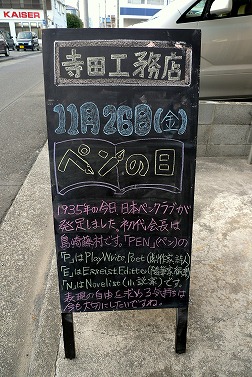 KAISER
寺田工務店
11月26日(金)
ペンの日
1935年の今日 日本ペンクラブが
発足しました。初代会長は
島崎藤村です。「PEN」(ペン)の
「P」はPlayWrite、Poet(劇作家、詩人)
「E」はEsseist Editter(随筆家、編集者)
「N」はNovelist(小説家)です。
表現の自由を求める気持ちは
今も大切にしたいですね。